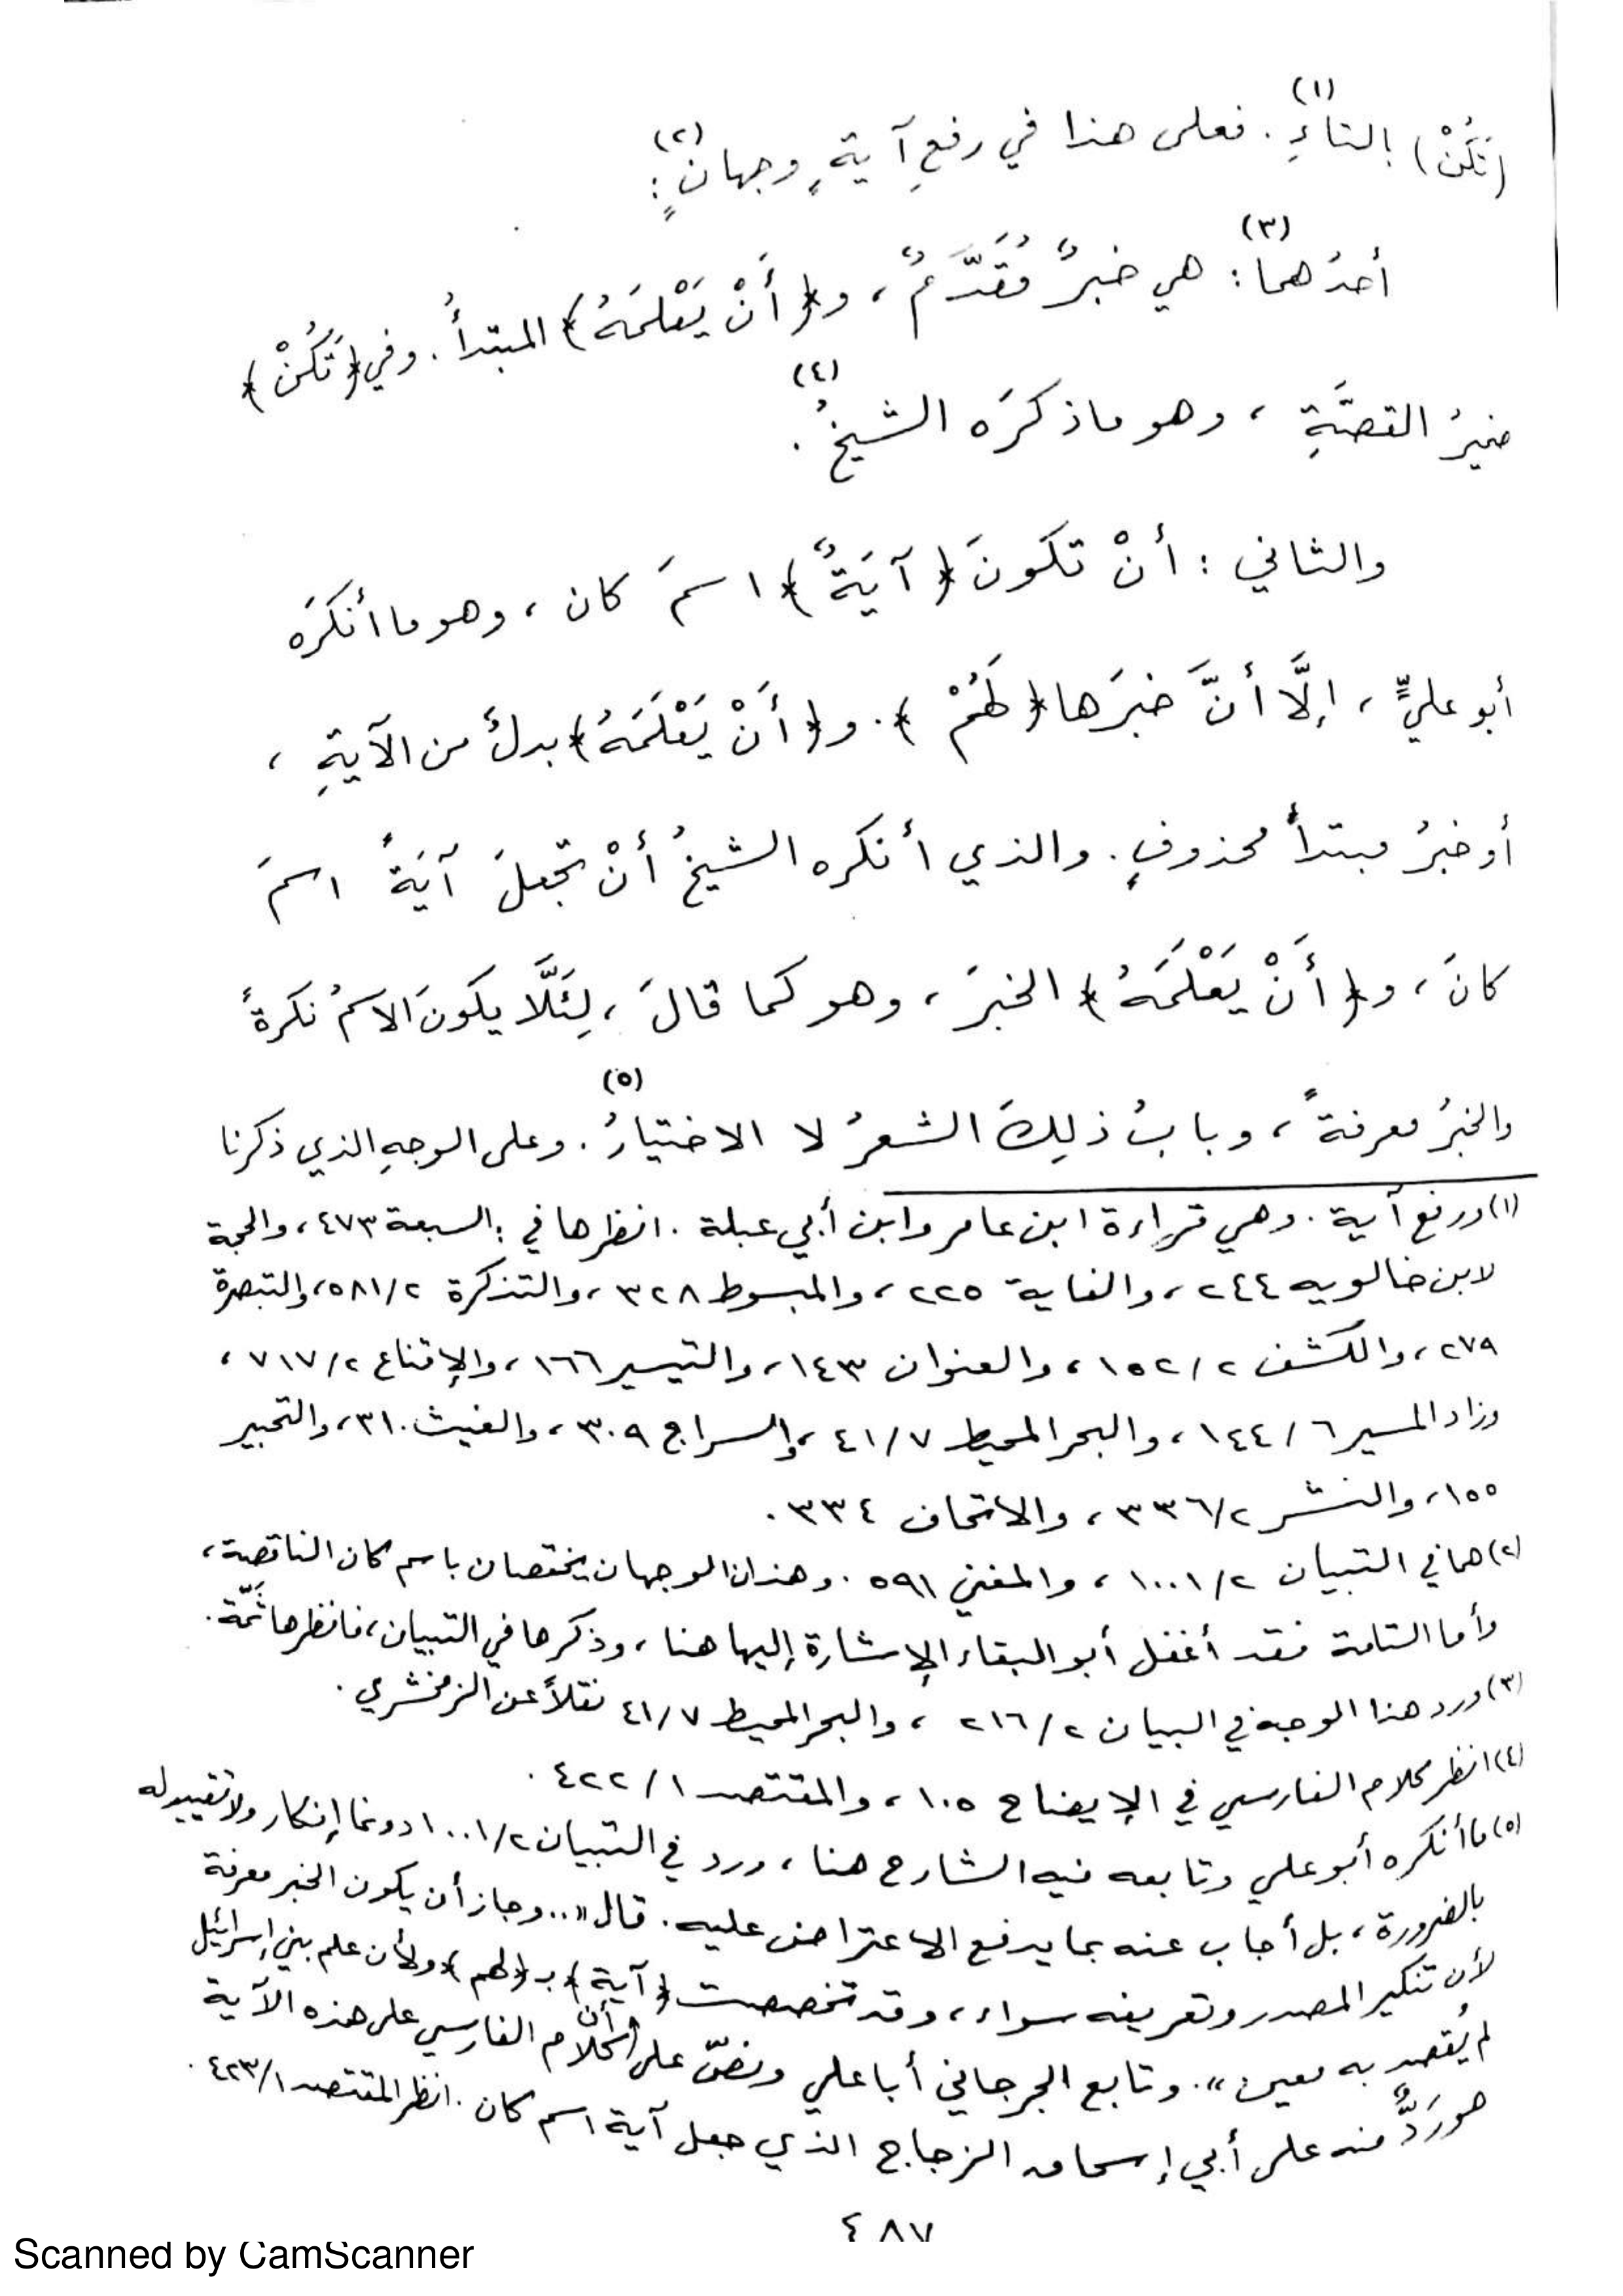 (تَكُنْ) بالتاءِ(١). فعلى هذا في رفعِ آيةٍ وجهانِ(٢):
أحدُهما(٣): هي خبرٌ مُقَدَّمٌ، و﴿أَنْ يَعْلَمَهُ﴾ المبتدأُ. وفي ﴿تَكُنْ﴾
ضميرُ القصَّةِ، وهو ما ذكرَه الشيخُ(٤).
والثاني: أنْ تكونَ ﴿آيَةٌ﴾ اسمَ كان، وهو ما أنكرَه
أبو عليٍّ، إلَّا أنَّ خبرَها ﴿لَهُمْ﴾. و﴿أَنْ يَعْلَمَهُ﴾ بدلٌ من الآيةِ،
أو خبرُ مبتدأٍ محذوفٍ. والذي أنكره الشيخُ أنْ تجعلَ آيَةً اسمَ
كانَ، و﴿أَنْ يَعْلَمَهُ﴾ الخبرَ، وهو كما قالَ، لِئَلَّا يكونَ الاسمُ نكرةً
والخبرُ معرفةً، وبابُ ذلِكَ الشعرُ لا الاختيارُ(٥). وعلى الوجهِ الذي ذكرنا
(١) ورفع آية. وهي قراءة ابن عامر وابن أبي عبلة. انظرها في: السبعة ٤٧٣، والحجة
لابن خالويه ٢٤٤، والغاية ٢٢٥، والمبسوط ٣٢٨، والتذكرة ٥٨١/٢، والتبصرة
٢٧٩، والكشف ١٥٢/٢، والعنوان ١٤٣، والتيسير ١٦٦، والإقناع ٧١٧/٢،
وزاد المسير ١٤٤/٦، والبحر المحيط ٤١/٧، والسراج ٣٠٩، والغيث ٣١٠، والتحبير
١٥٥، والنشر ٣٣٦/٢، والاتحاف ٣٣٤.
(٢) هما في التبيان ١٠٠١/٢، والمغني ٥٩١. وهذان الوجهان يختصان باسم كان الناقصة،
وأما التامة فقد أغفل أبو البقاء الإشارة إليها هنا، وذكرها في التبيان، فانظرها ثَمّة.
(٣) ورد هذا الوجه في البيان ٢١٦/٢، والبحر المحيط ٤١/٧ نقلاً عن الزمخشري.
(٤) انظر كلام الفارسي في الإيضاح ١٠٥، والمقتصد ٤٢٢/١.
(٥) ما أنكره أبو علي وتابعه فيه الشارح هنا، ورد في التبيان ١٠٠١/٢ دونما إنكار ولا تقييد له
بالضرورة، بل أجاب عنه بما يدفع الاعتراض عليه. قال «.. وجاز أن يكون الخبر معرفة
لأن تنكير المصدر وتعريفه سواء، وقد تخصصت ﴿آية﴾ بـ﴿لهم﴾ ولأن علم بني إسرائيل
لم يُقصد به معين». وتابع الجرجاني أبا علي ونصّ على أن كلام الفارسي على هذه الآية
هو رَدٌّ منه على أبي إسحاق الزجاج الذي جعل آية اسم كان. انظر المقتصد ٤٢٣/١.
٤٨٧
Scanned by CamScanner